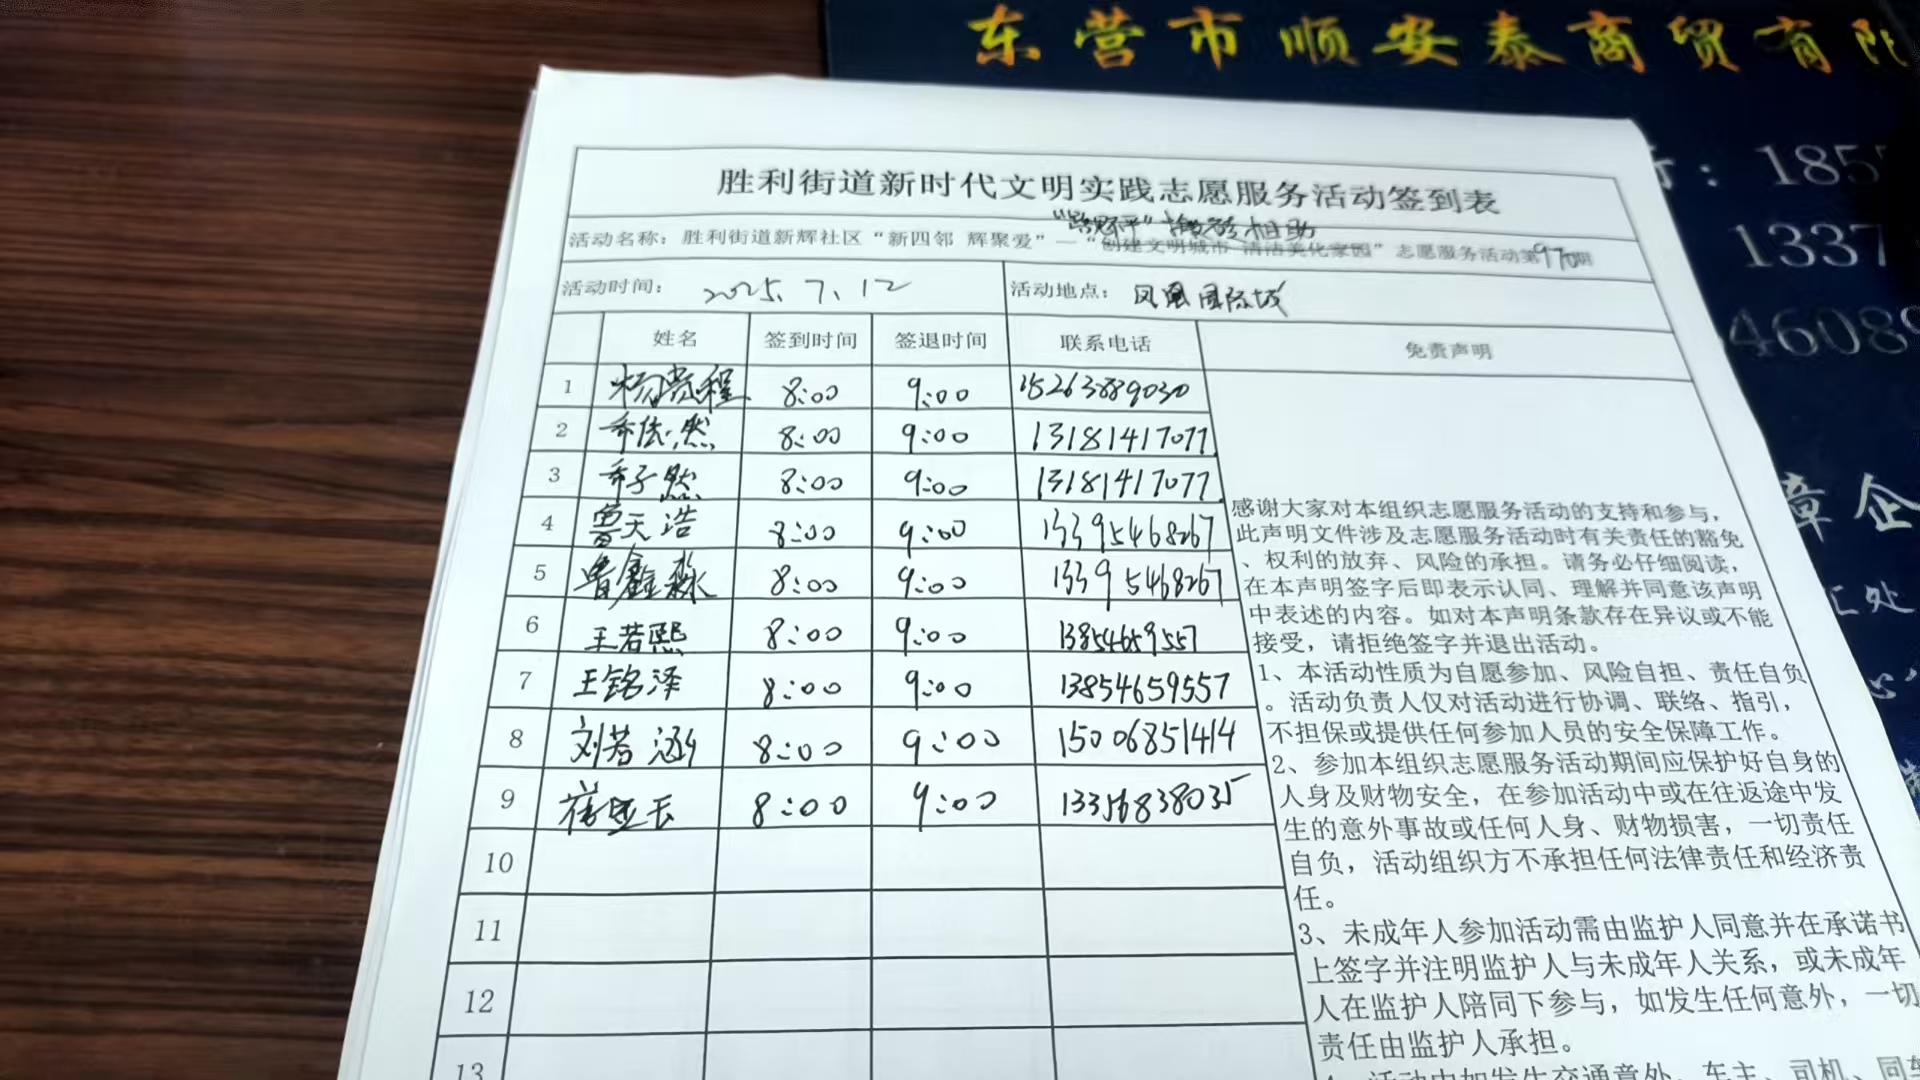 东营市顺安泰商贸有限
: 185
1337
46089
章企
汇处
胜利街道新时代文明实践志愿服务活动签到表
相助
活动名称：胜利街道新辉社区“新四邻 辉聚爱”—“创建文明城市 清洁美化家园”志愿服务活动第970期
活动时间： 2025.7.12 活动地点： 凤凰国际城
姓名 签到时间 签退时间 联系电话 免责声明
1 8:00 9:00 15263889030
2 8:00 9:00 13181417077
3 8:00 9:00 13181417077
4 曹天浩 8:00 9:00 13395468267
5 鲁鑫淼 8:00 9:00 13395468267
6 王若熙 8:00 9:00 13854659557
7 王铭泽 8:00 9:00 13854659557
8 刘芳涵 8:00 9:00 15006851414
9 8:00 9:00 13356838035
10
11
12
13
感谢大家对本组织志愿服务活动的支持和参与，
此声明文件涉及志愿服务活动时有关责任的豁免
、权利的放弃、风险的承担。请务必仔细阅读，
在本声明签字后即表示认同、理解并同意该声明
中表述的内容。如对本声明条款存在异议或不能
接受，请拒绝签字并退出活动。
1、本活动性质为自愿参加、风险自担、责任自负
。活动负责人仅对活动进行协调、联络、指引，
不担保或提供任何参加人员的安全保障工作。
2、参加本组织志愿服务活动期间应保护好自身的
人身及财物安全，在参加活动中或在往返途中发
生的意外事故或任何人身、财物损害，一切责任
自负，活动组织方不承担任何法律责任和经济责
任。
3、未成年人参加活动需由监护人同意并在承诺书
上签字并注明监护人与未成年人关系，或未成年
人在监护人陪同下参与，如发生任何意外，一切
责任由监护人承担。
4、活动中如发生交通意外，车主、司机、同车